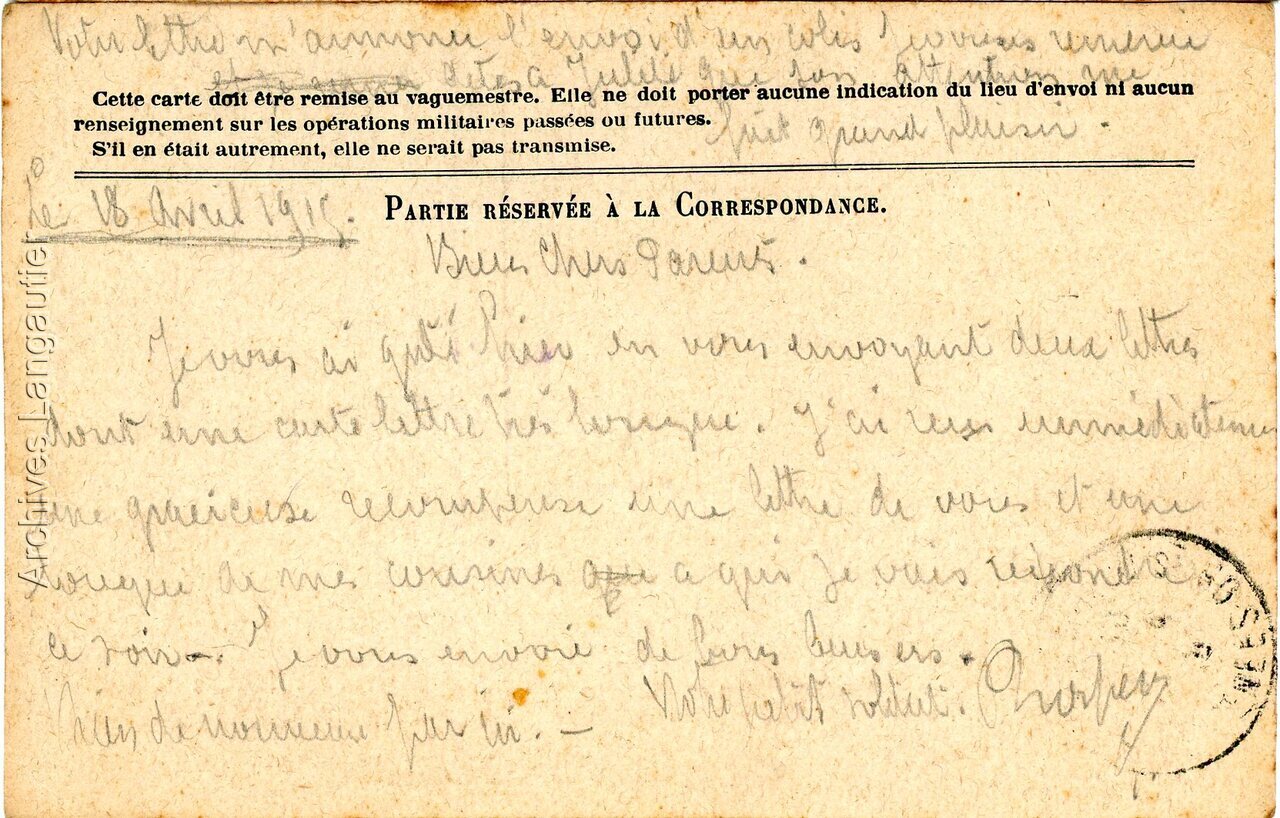 Votre lettre m'annonce l'envoi d'un colis Je vous remercie
dites a Juliette que son attention me
fait grand plaisir.
Cette carte doit être remise au vaguemestre. Elle ne doit porter aucune indication du lieu d'envoi ni aucun
renseignement sur les opérations militaires passées ou futures.
S'il en était autrement, elle ne serait pas transmise.
le 18 Avril 1915.
PARTIE RÉSERVÉE À LA CORRESPONDANCE.
Bien Chers Parents.
Je vous ai gâté hier en vous envoyant deux lettres
dont une carte lettre très longue. J'ai reçu immédiatement
une gracieuse recompense une lettre de vous et une
longue de mes cousines a qui je vais repondre
ce soir. Je vous envoie de bons baisers.
Rien de nouveau par ici. — Votre petit soldat. Prosper
Archives Langautier